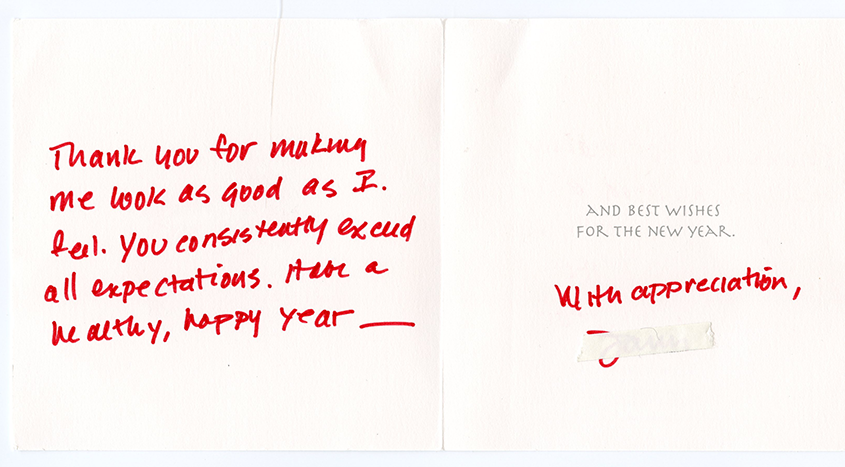 Thank you for making
me look as good as I.
feel. You consistently exceed
all expectations. Have a
healthy, happy year
AND BEST WISHES
FOR THE NEW YEAR.
With appreciation,